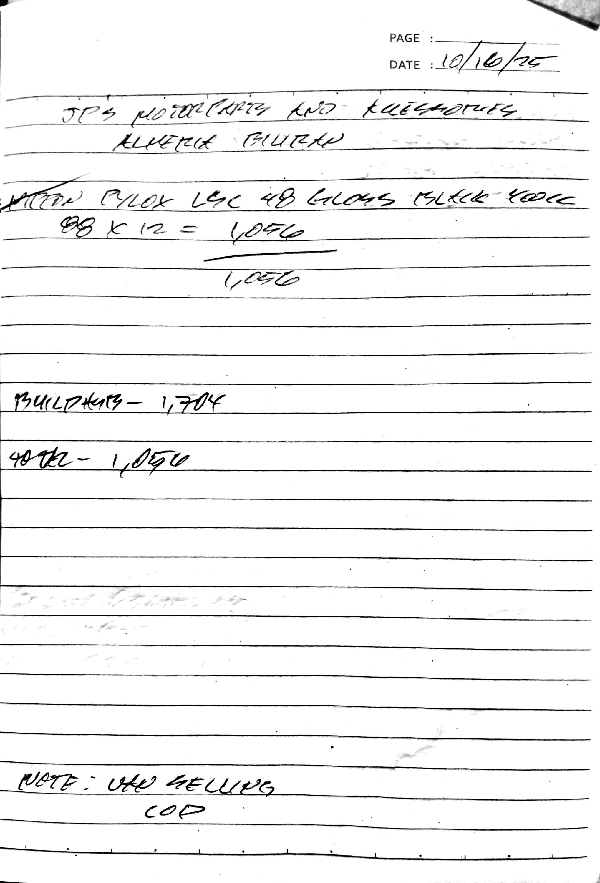 PAGE :
DATE : 10/16/25
JPS MOTORPARTS AND ACCESSORIES
ALMERIA BILIRAN
NIPPON PYLOX LGC 48 GLOSS BLACK 400CC
88 X 12 = 1,056
1,056
BUILDHUB - 1,704
- 1,056
NOTE: VAN SELLING
COD